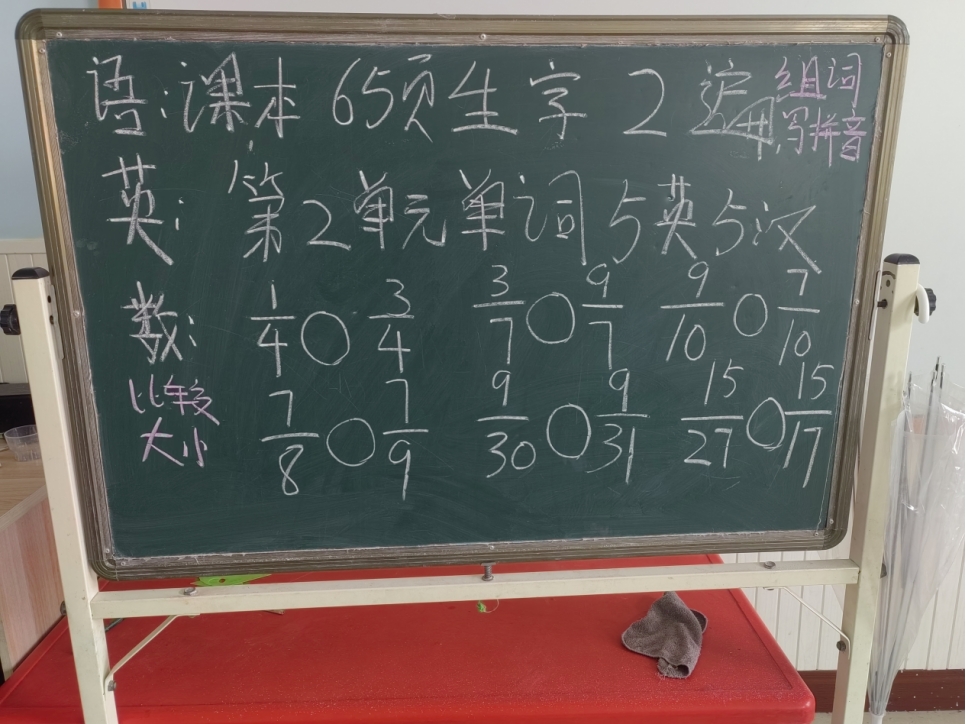 语:课本65页生字2遍 组词 写拼音
英:第2单元单词5英5汉
数: 1/4○3/4 3/7○9/7 9/10○7/10
比较大小 7/8○7/9 9/30○9/31 15/27○15/17